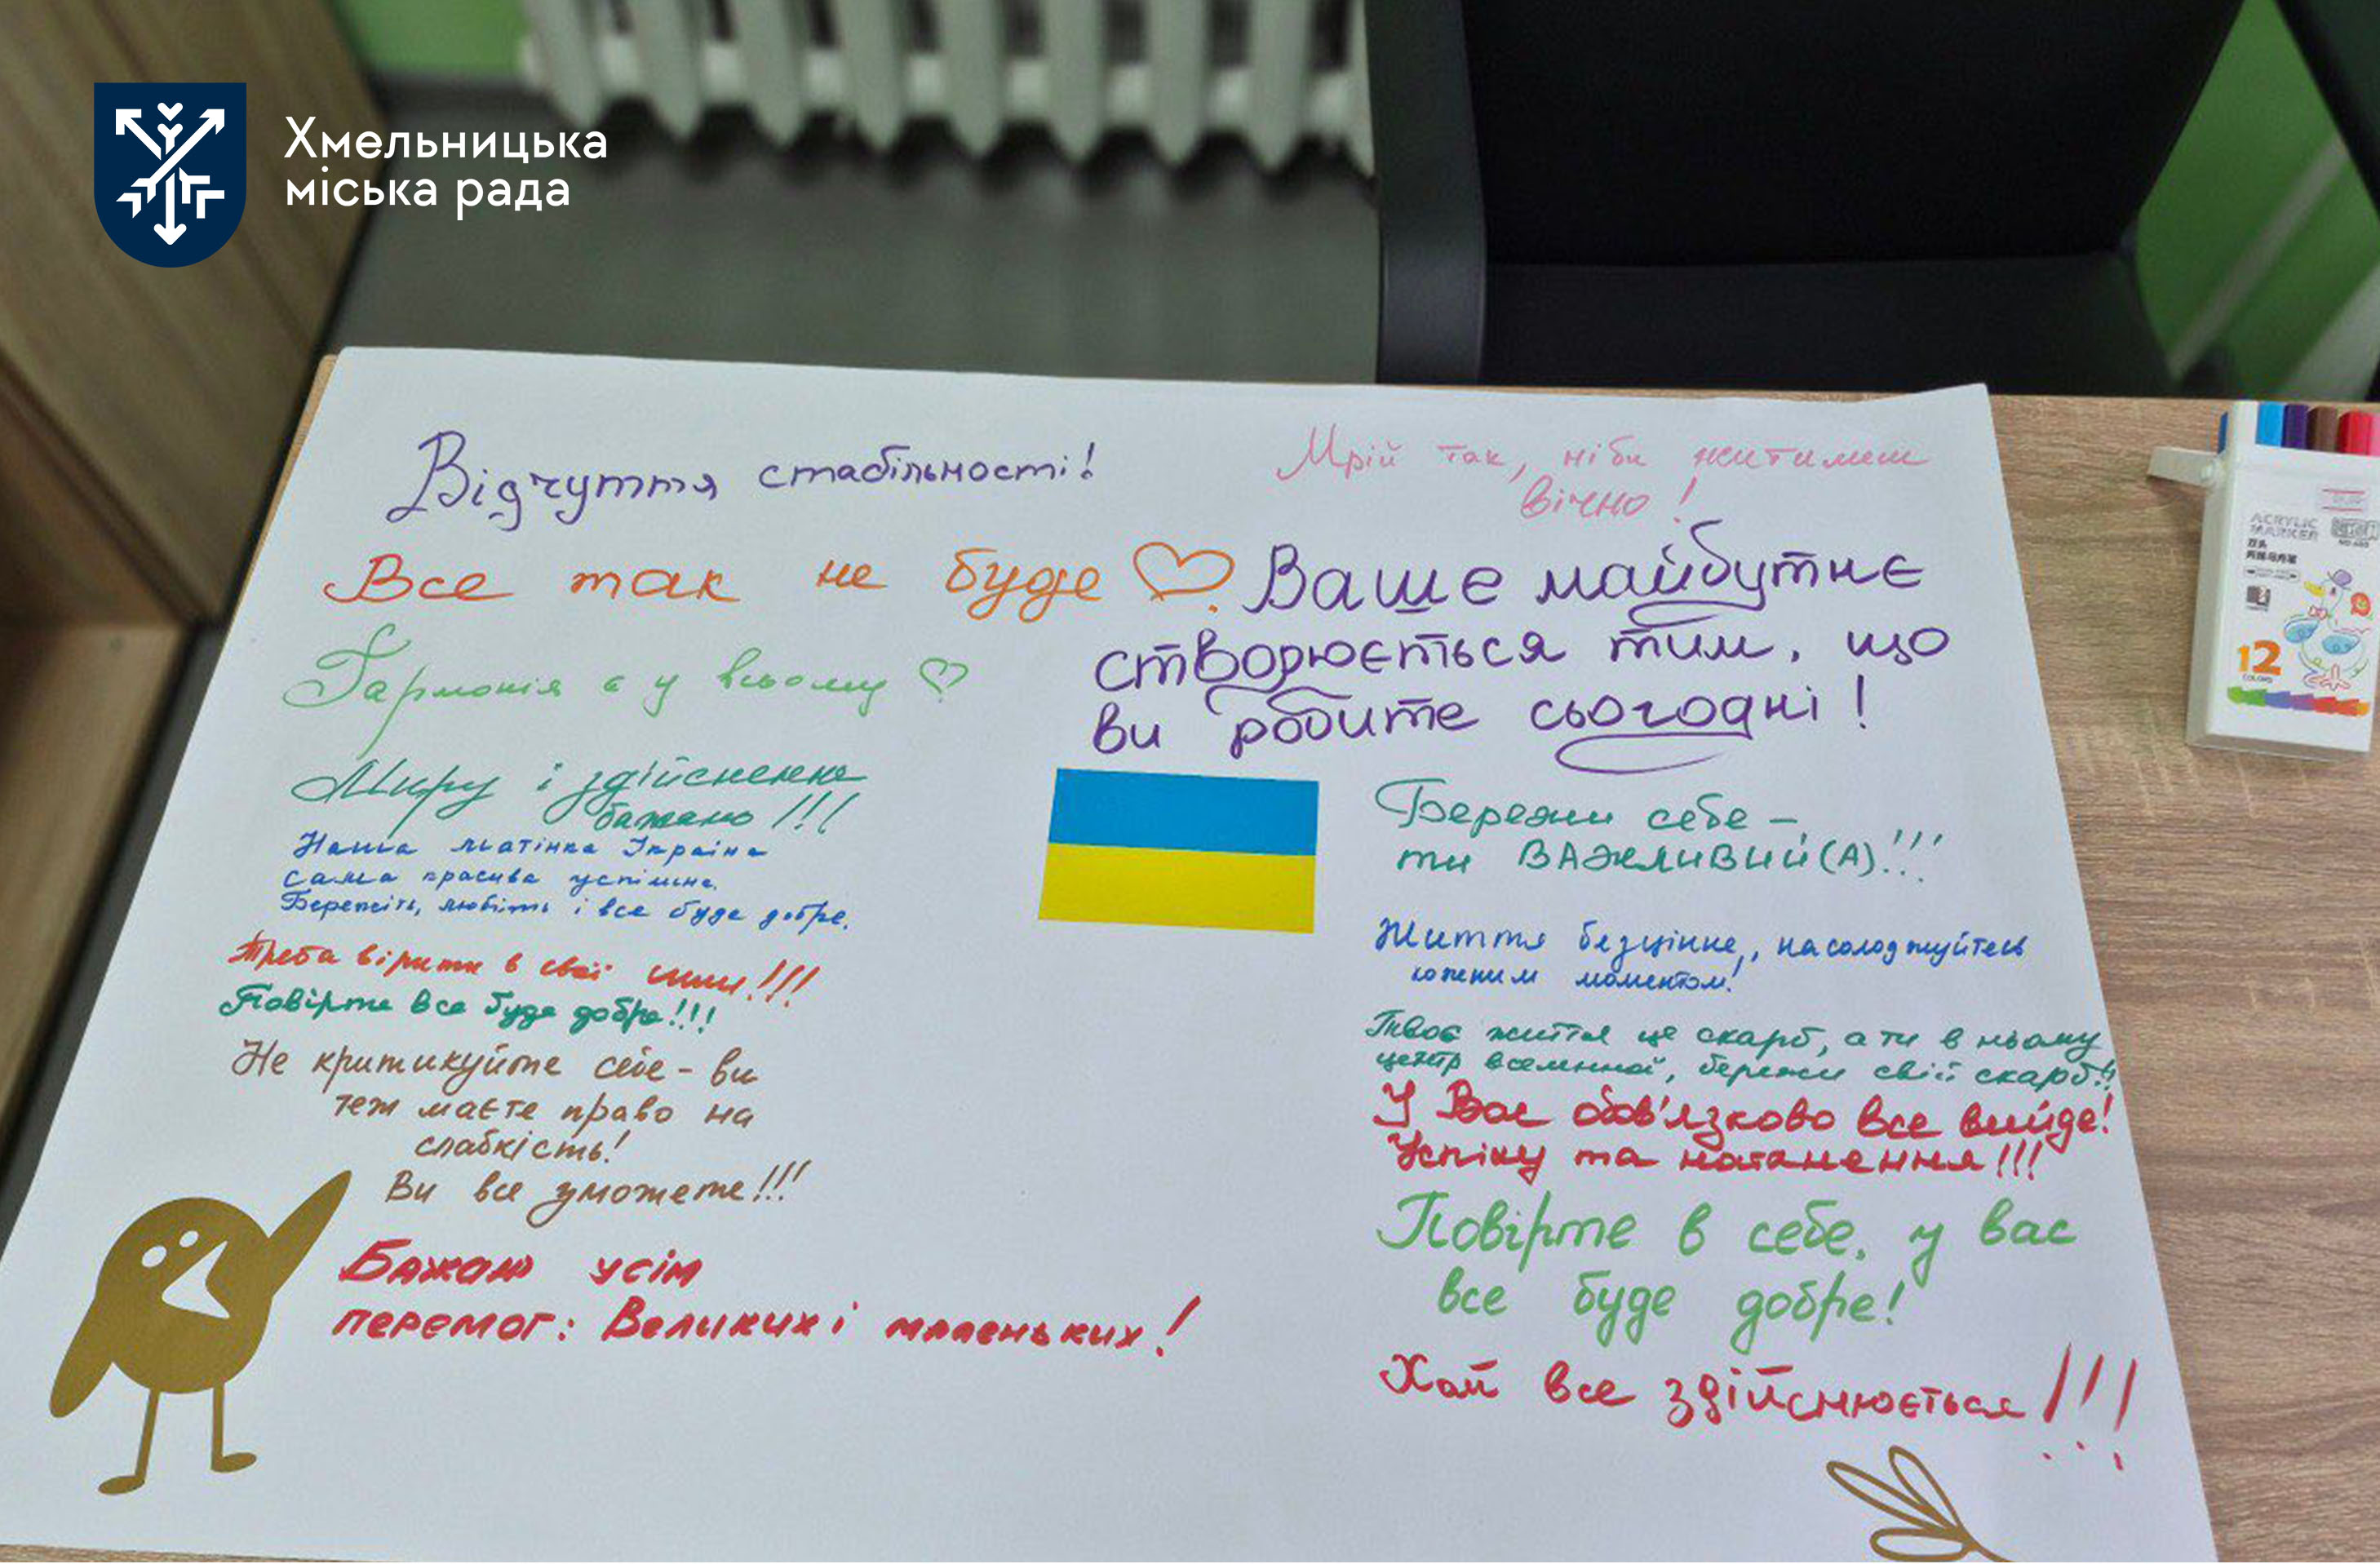 Хмельницька
міська рада
Відчуття стабільності!
Мрій так, ніби житимеш
вічно!
Все так не буде
Ваше майбутнє
створюється тим, що
ви робите сьогодні!
Гармонія є у всьому
Миру і здійснення
бажано!!!
Наша матінка Україна
сама красива успішна.
Бережіть, любіть і все буде добре.
Треба вірити в свої сили!!!
Повірте все буде добре!!!
Не критикуйте себе - ви
теж маєте право на
слабкість!
Ви все зможете!!!
Бажаю усім
перемог: Великих і маленьких!
Бережи себе -
ти ВАЖЛИВИЙ(А)!!!
Життя безцінне, насолоджуйтесь
кожним моментом!
Твоє життя це скарб, а ти в ньому
центр вселенної, бережи свій скарб!!
У Вас обов'язково все вийде!
Успіху та натхнення!!!
Повірте в себе, у вас
все буде добре!
Хай все здійснюється!!!
ACRYLIC
MARKER
12
COLORS